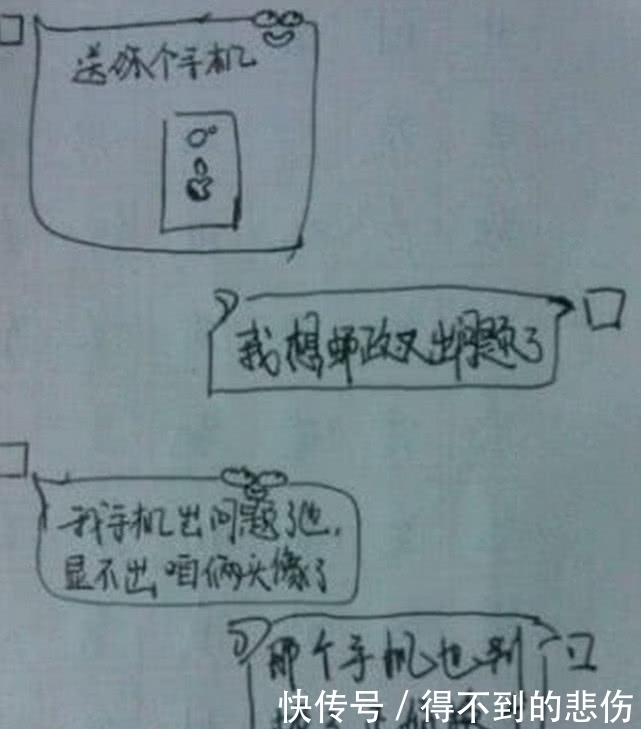 送你个手机
我想邮政又出问题了
我手机出问题了也,
显不出咱俩头像了
那个手机也别
快传号 / 得不到的悲伤